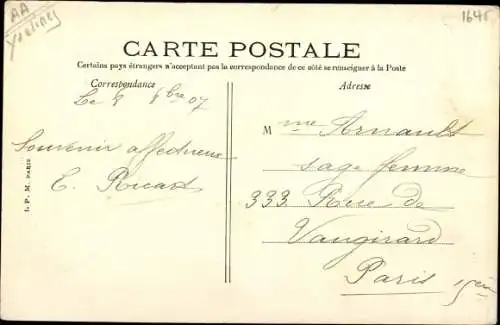 AA
Yvelines
1645
CARTE POSTALE
Certains pays étrangers n'acceptent pas la correspondance de ce côté se renseigner à la Poste
Correspondance
Adresse
Le 8 8bre 07
Souvenir affectueux
E. Ricard
Mme Arnault
sage femme
333 Rue de
Vaugirard
Paris 15ème
I. P. M. PARIS